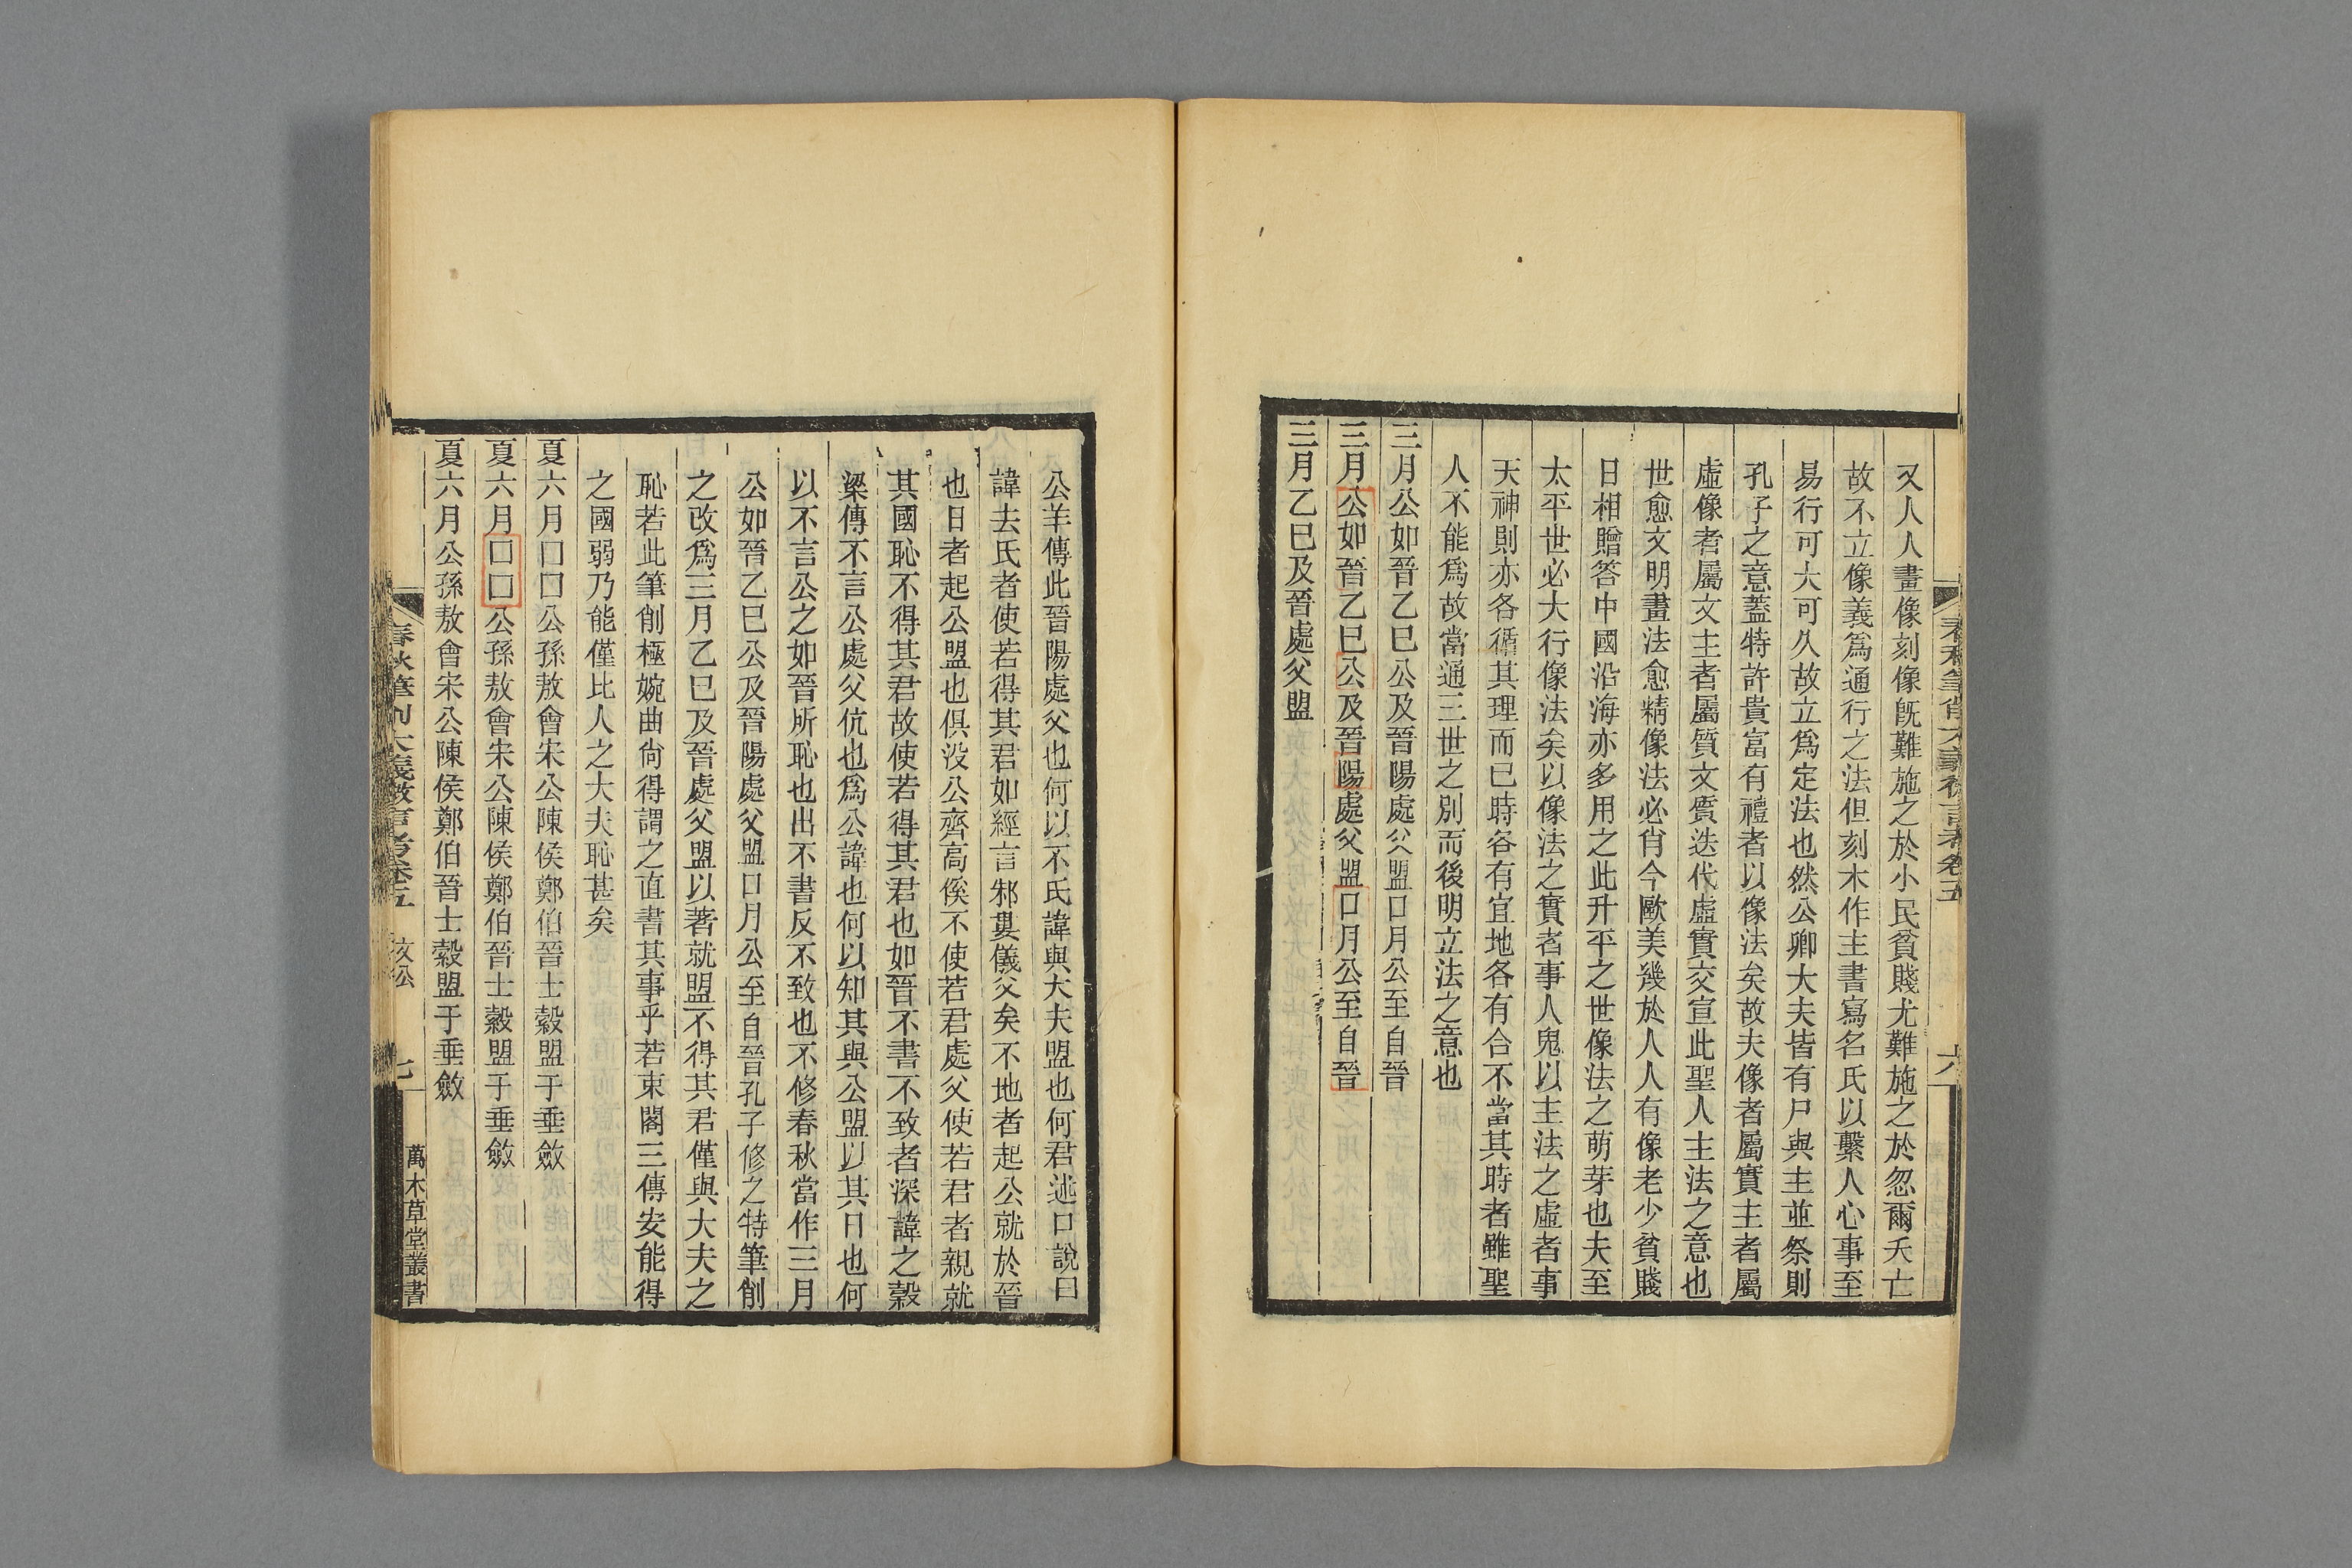 又人人畫像刻像旣難施之於小民貧賤尤難施之於忽爾夭亡
故不立像義爲通行之法但刻木作主書寫名氏以繫人心事至
易行可大可久故立爲定法也然公卿大夫皆有尸與主並祭則
孔子之意蓋特許貴富有禮者以像法矣故夫像者屬實主者屬
虛像者屬文主者屬質文質迭代虛實交宣此聖人主法之意也
世愈文明畫法愈精像法必肖今歐美幾於人人有像老少貧賤
日相贈答中國沿海亦多用之此升平之世像法之萌芽也夫至
太平世必大行像法矣以像法之實者事人鬼以主法之虛者事
天神則亦各循其理而已時各有宜地各有合不當其時者雖聖
人不能爲故當通三世之別而後明立法之意也
三月公如晉乙巳公及晉陽處父盟口月公至自晉
三月公如晉乙巳公及晉陽處父盟口月公至自晉
三月乙巳及晉處父盟
春秋筆削大義微言考卷五
六
公羊傳此晉陽處父也何以不氏諱與大夫盟也何君述口說曰
諱去氏者使若得其君如經言邾婁儀父矣不地者起公就於晉
也日者起公盟也俱沒公齊高傒不使若君處父使若君者親就
其國恥不得其君故使若得其君也如晉不書不致者深諱之穀
梁傳不言公處父伉也爲公諱也何以知其與公盟以其日也何
以不言公之如晉所恥也出不書反不致也不修春秋當作三月
公如晉乙巳公及晉陽處父盟口月公至自晉孔子修之特筆削
之改爲三月乙巳及晉處父盟以著就盟不得其君僅與大夫之
恥若此筆削極婉曲尙得謂之直書其事乎若束閣三傳安能得
之國弱乃能僅比人之大夫恥甚矣
夏六月口口公孫敖會宋公陳侯鄭伯晉士穀盟于垂斂
夏六月口口公孫敖會宋公陳侯鄭伯晉士穀盟于垂斂
夏六月公孫敖會宋公陳侯鄭伯晉士穀盟于垂斂
春秋筆削大義微言考卷五　文公
七
萬木草堂叢書